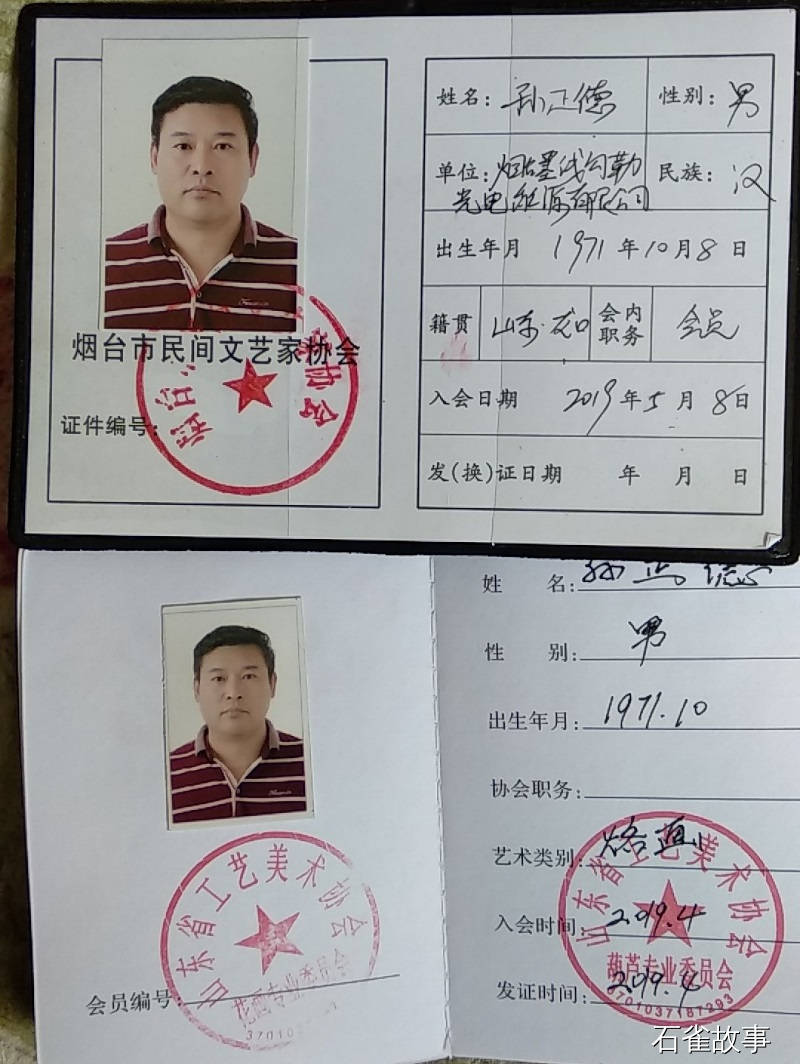 烟台市民间文艺家协会
证件编号:
姓名: 孙正德 性别: 男
单位: 烟台墨线勾勒 民族: 汉
光电能源有限公司
出生年月 1971年10月8日
籍贯 山东·龙口 会内职务 会员
入会日期 2019年5月8日
发(换)证日期 年 月 日
姓 名: 孙正德
性 别: 男
出生年月: 1971.10
协会职务:
艺术类别: 烙画
入会时间: 2019.4
发证时间: 2019.4
山东省工艺美术协会
葫芦专业委员会
3701037187293
山东省工艺美术协会
专业委员会
会员编号:
石雀故事